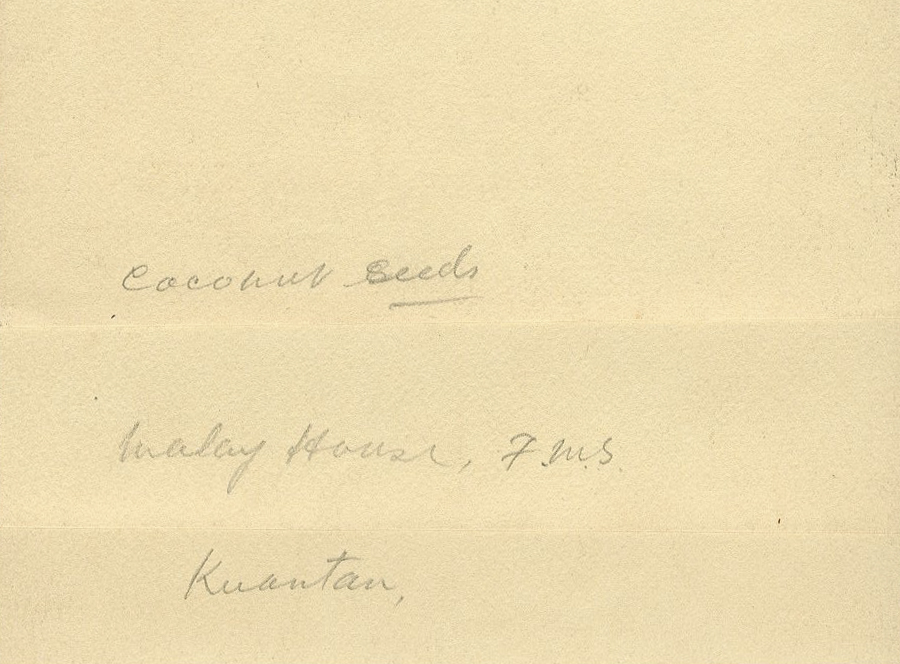 Coconut Seeds
Malay House, F.M.S.
Kuantan,